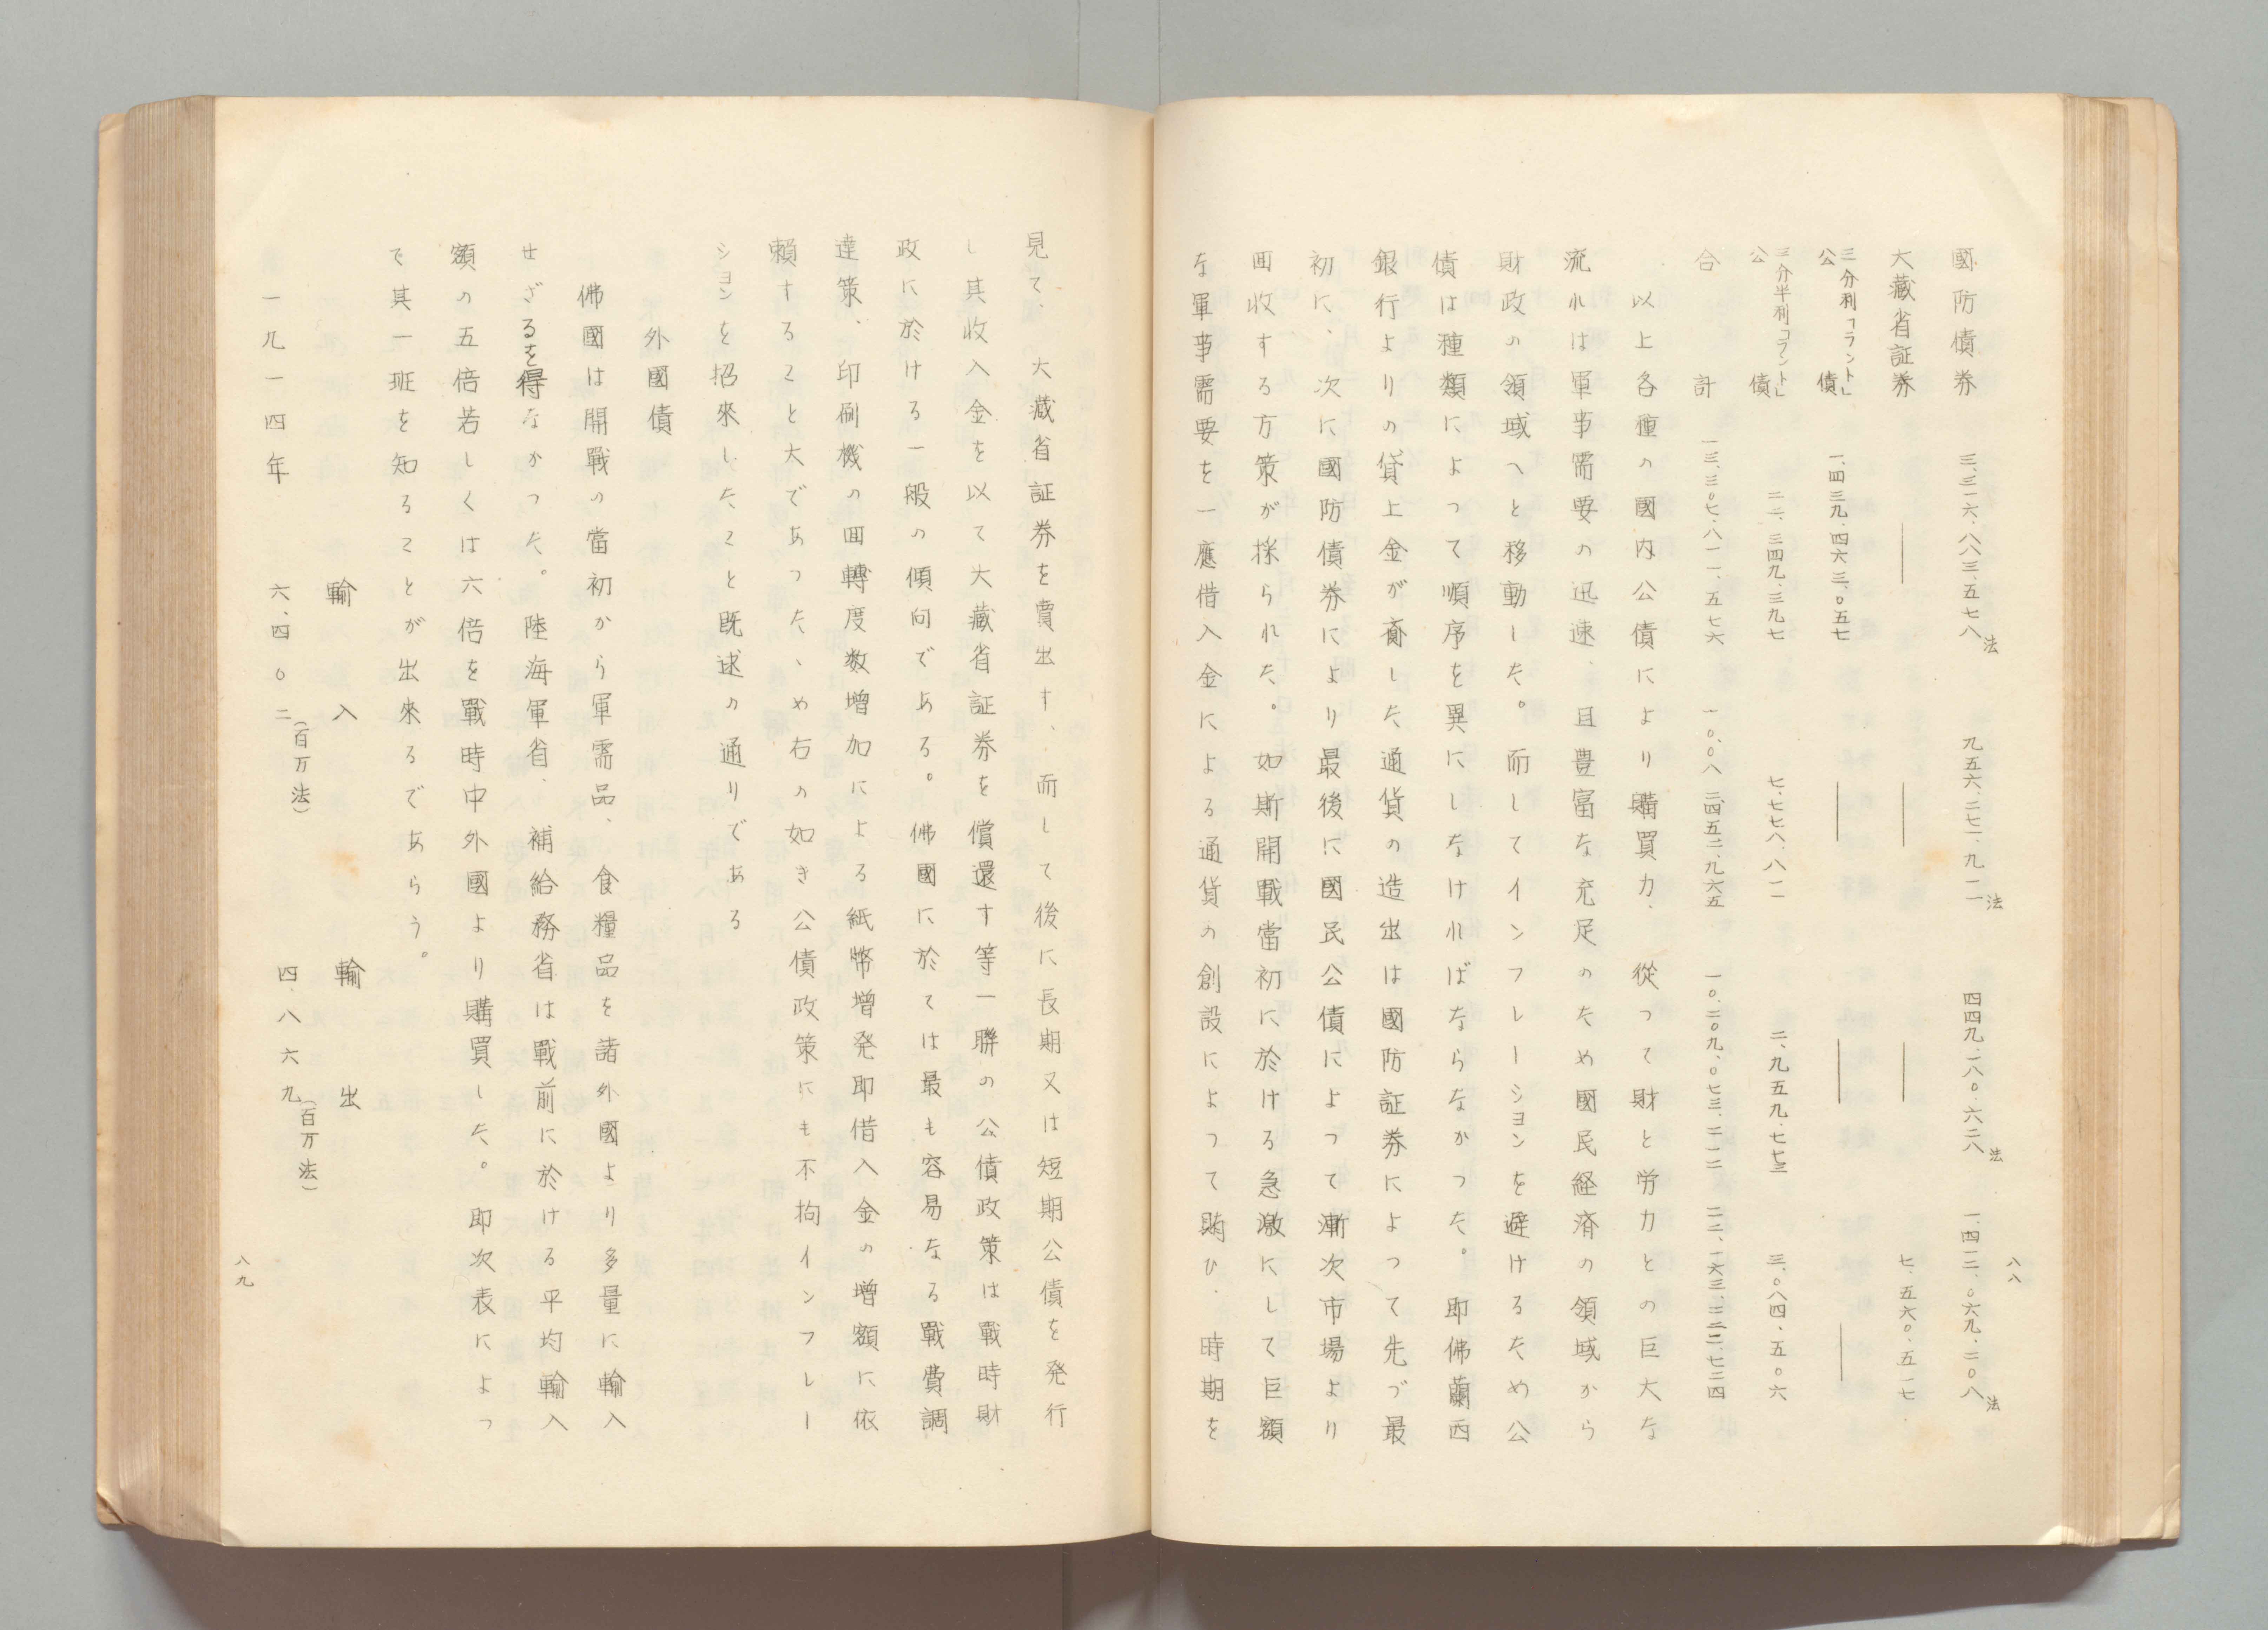 八八
國防債券 三、三一六、八八三、五七八法 九五六、二七一、九一一法 四四九、二八〇、六二八法 一、四一二、〇六九、二〇八法
大藏省証券 ― ― ― 七、五六〇、五一七
三分利「ラント」公債 一、四三九、四六三、〇五七 ― ― ―
三分半利「ラント」公債 二二、三四九、三九七 七、七七八、八一一 二、九五九、七七三 三、〇八四、五〇六
合計 一三、三〇七、八一一、五七六 一〇、〇八二、四五二、九六五 一〇、二〇九、〇七三、二一二 二二、一六三、三二二、七二四
以上各種の國内公債により購買力、從つて財と労力との巨大な
流れは軍事需要の迅速、且豊富な充足のため國民経済の領域から
財政の領域へと移動した。而してインフレーションを避けるため公
債は種類によつて順序を異にしなければならなかつた。即佛蘭西
銀行よりの貸上金が齎した通貨の造出は國防証券によつて先づ最
初に、次に國防債券により最後に國民公債によつて漸次市場より
回收する方策が採られた。如斯開戰當初に於ける急激にして巨額
な軍事需要を一應借入金による通貨の創設によつて賄ひ、時期を
見て、大藏省証券を賣出す、而して後に長期又は短期公債を発行
し其收入金を以て大藏省証券を償還す等一聯の公債政策は戰時財
政に於ける一般の傾向である。佛國に於ては最も容易なる戰費調
達策、印刷機の回轉度数増加による紙幣増発即借入金の増額に依
頼すること大であつたゝめ右の如き公債政策にも不拘インフレー
ションを招來したこと既述の通りである
外國債
佛國は開戰の當初から軍需品、食糧品を諸外國より多量に輸入
せざるを得なかつた。陸海軍省、補給務省は戰前に於ける平均輸入
額の五倍若しくは六倍を戰時中外國より購買した。即次表によつ
て其一班を知ることが出來るであらう。
輸入 輸出
一九一四年 六、四〇二(百万法) 四、八六九(百万法)
八九